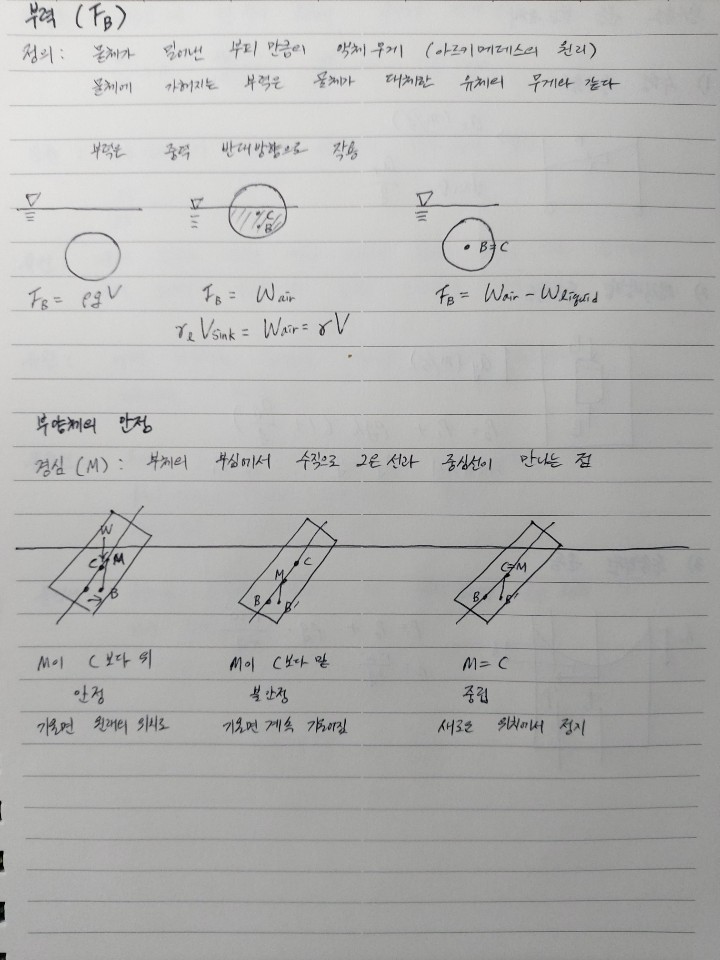 부력 (F_B)
정의 : 물체가 밀어낸 부피 만큼의 액체 무게 (아르키메데스의 원리)
물체에 가해지는 부력은 물체가 대체한 유체의 무게와 같다
부력은 중력 반대방향으로 작용
C
B
B=C
F_B = ρgV
F_B = Wair
F_B = Wair - Wliquid
γ_ℓ Vsink = Wair = γV
부양체의 안정
경심 (M) : 부체의 부심에서 수직으로 그은 선과 중심선이 만나는 점
W
C M
B
C
M
B B'
C=M
B B'
M이 C보다 위
M이 C보다 밑
M = C
안정
불안정
중립
기울면 원래의 위치로
기울면 계속 기울어짐
새로운 위치에서 정지